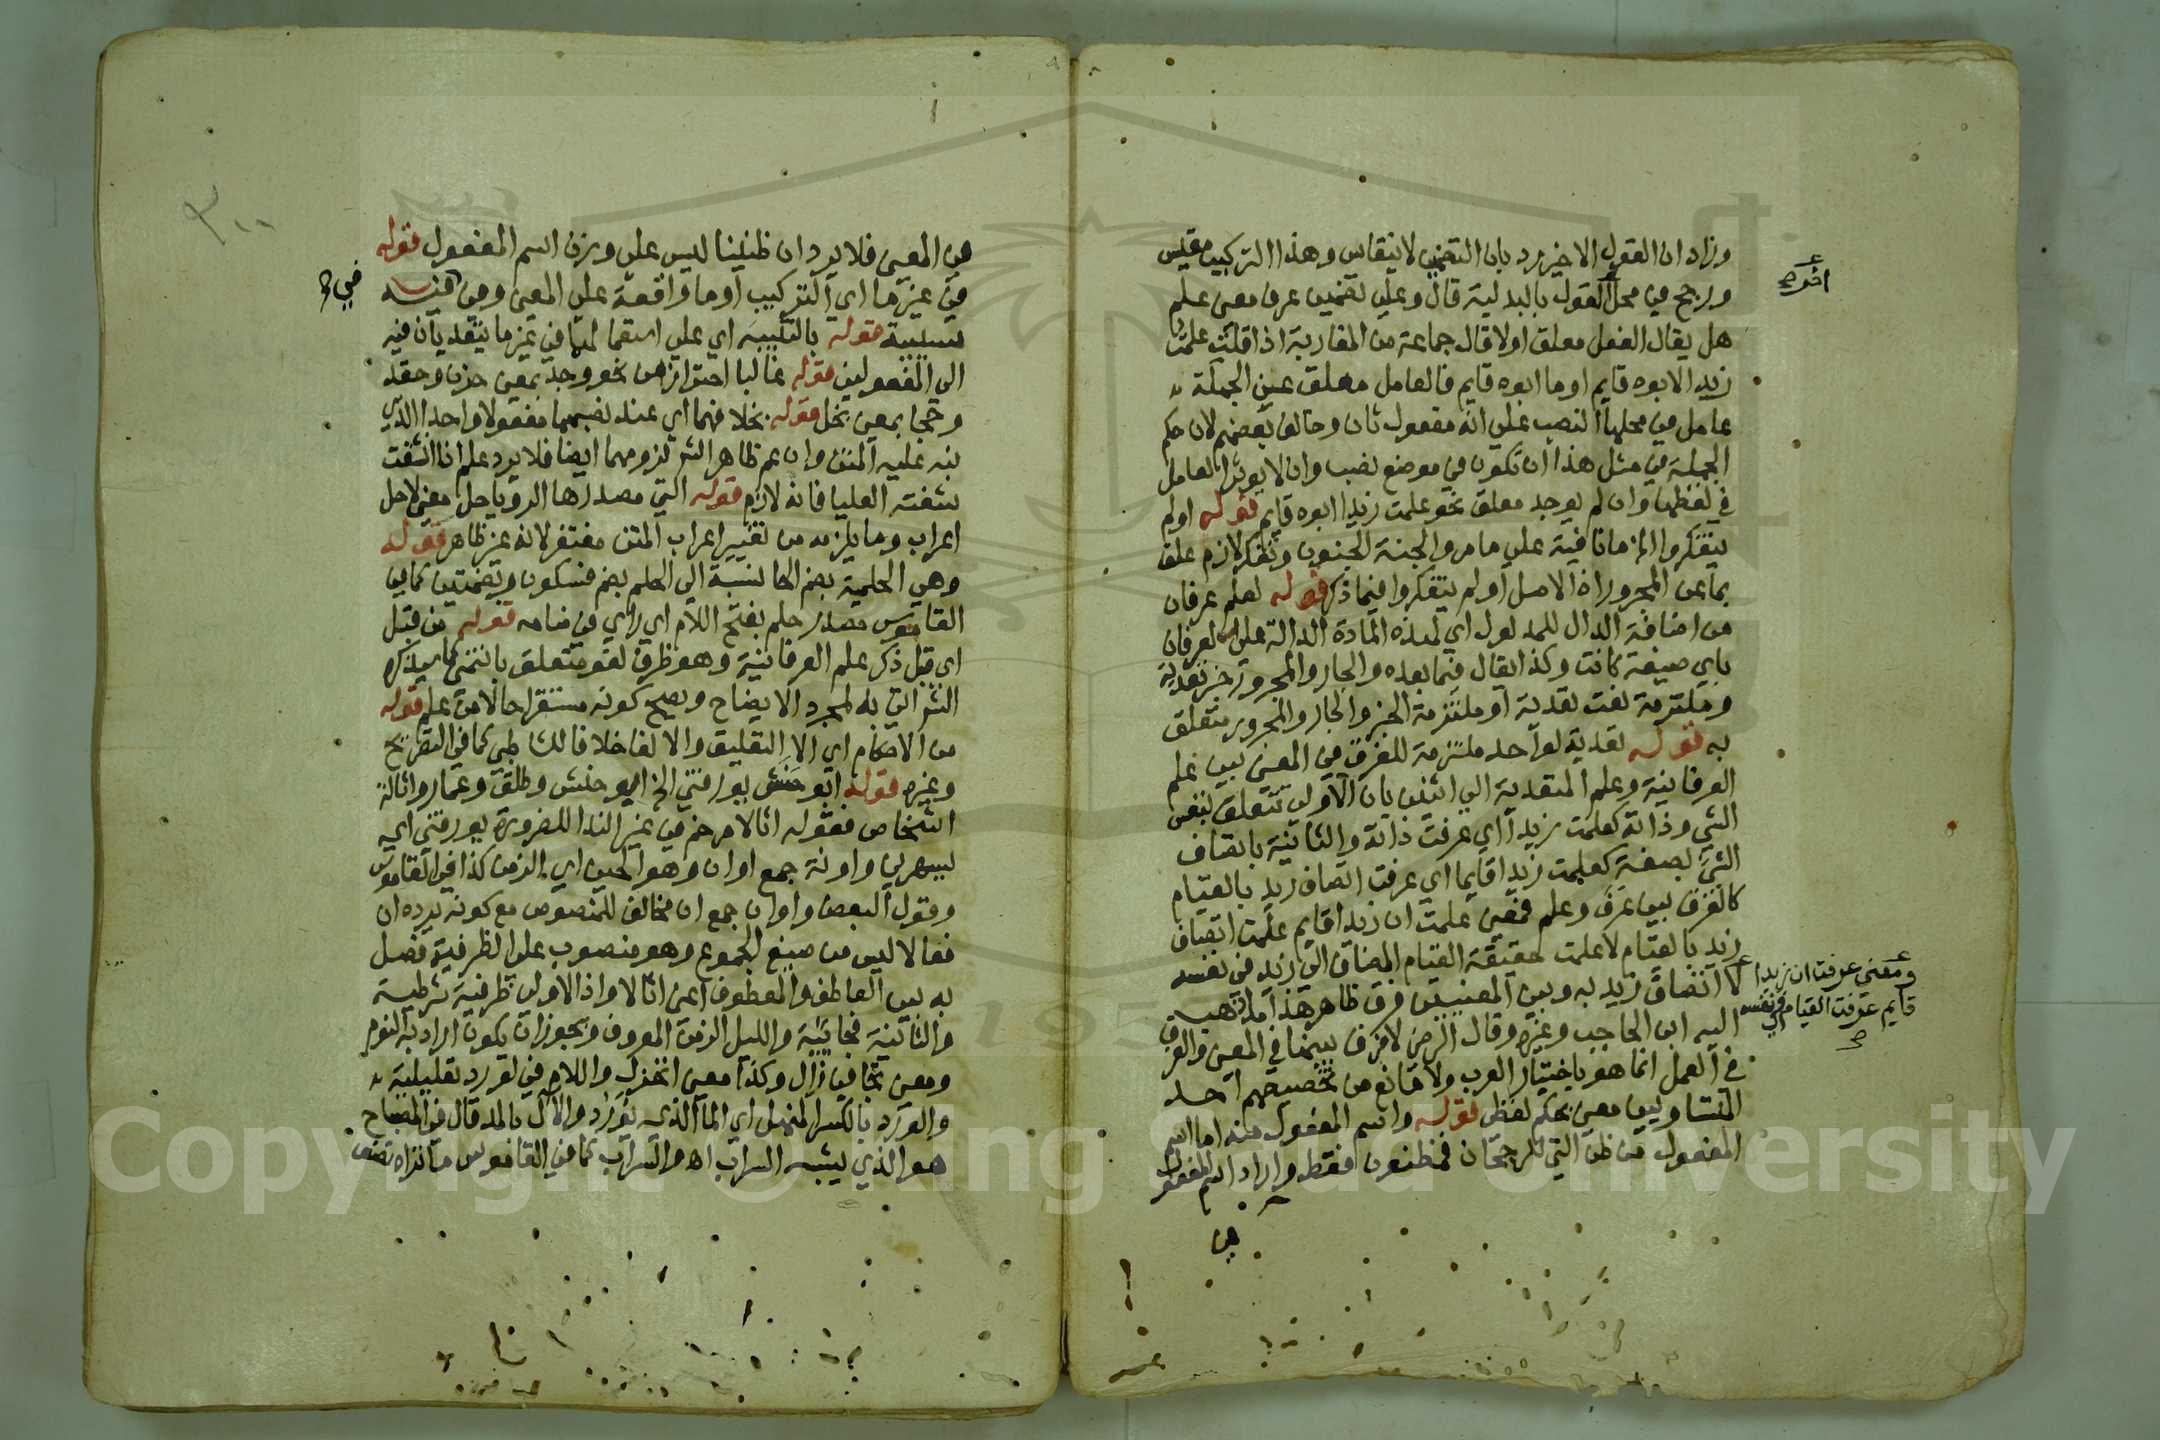 وزاد ان القول الاخير مردبان التضمين لا ينقاس وهذا التركيب مقيس
ورجح من محل القول بالبدلية قال وعلى تضمين عرف معنى علم
هل يقال الفعل معلق اولا قال جماعة من المغاربة اذا قلت علمت
زيد الابوه قايم او ما ابوه قايم فالعامل معلق عن الجملة
عامل في محلها النصب على انه مفعول ثان وخالف بعضهم لان حكم
الجملة في مثل هذا ان تكون في موضع نصب وان لا يوثر العامل
في لفظها وان لم يوجد معلق نحو علمت زيدا ابوه قايم قوله اولم
يتفكروا الخ ما نافية على ما مر والجنة الجنون وتفكر لازم علق
بما عن المجرور اذ الاصل اولم يتفكروا فيما ذكر قوله لعلم عرفان
من اضافة الدال للمدلول اي لهذه المادة الدالة على العرفان
باي صيغة كانت وكذا يقال فيما بعده والجار والمجرور خبر تعدية
وملتزمة نعت تعدية او ملتزمة الخبر والجار والمجرور متعلق
به قوله تعدية لواحد ملتزمة للفرق في المعنى بين علم
العرفانية وعلم المتعدية الى اثنين بان الاولى تتعلق بنفس
الشي وذاته كعلمت زيدا اي عرفت ذاته والثانية باتصاف
الشي بصفة كعلمت زيدا قايما اي عرفت اتصاف زيد بالقيام
كالفرق بين عرف وعلم فمعنى علمت ان زيدا قايم علمت اتصاف
زيد بالقيام لا علمت حقيقة القيام المضاف الى زيد في نفسه
لا اتصاف زيد به وبين المعنيين فرق ظاهر هذا ما ذهب
اليه ابن الحاجب وغيره وقال الرضي لا فرق بينهما في المعنى والفرق
في العمل انما هو باختيار العرب ولا مانع من تخصيصهم احد
المتساويين معنى بحكم لفظى قوله واسم المفعول منه اما اسم
المفعول من ظن التي للرجحان فمظنون فقط واراد اسم المفعول
في
ومعنى عرفت ان زيدا
قايم عرفت القيام في نفسه
٣٠٠
في المعنى فلا يرد ان ظنينا ليس على وزن اسم المفعول قوله
في غيرها اي التركيب او ما واقعة على المعنى وفي فيه
سببية قوله بالغلبة اي على استعمالها في غير ما يتعدى بان فيه
الى المفعولين قوله غالبا احترازا من نحو وجد بمعنى حزن وحقد
وحجا بمعنى بخل قوله بخلافهما اي عند نصبهما مفعولا واحدا الذي
نبه عليه المتن وان عم ظاهر الش لزومهما ايضا فلا يرد علم اذا انشقت
شفته العليا فانه لازم قوله التي مصدرها الرويا حل معنى لا حل
اعراب وما يلزمه من تغيير اعراب المتن مغتفر لانه غير ظاهر قوله
وهي الحلمية بضم الحا نسبة الى الحلم بضم فسكون وبضمتين كما في
القاموس مصدر حلم بفتح اللام اي راي في منامه قوله من قبل
اي قبل ذكر علم العرفانية وهو ظرف لغو متعلق بانتمى كما سيذكره
الش اتى به لمجرد الايضاح ويصح كونه مستقرا حالا من علم قوله
من الاحكام اي الا التعليق والالغا خلافا للشاطبي كما في التصريح
وغيره قوله ابو حنش يورقني الخ ابو حنش وطلق وعمار واثالة
اشخاص فقوله اثالا مرخم في غير الندا للضرورة يورقني اي
يسهرني واونة جمع اوان وهو الحين اي الزمن كذا في القاموس
وقول البعض واوان جمع ان مخالف للمنصوص مع كونه يرده ان
فعالا ليس من صيغ الجموع وهو منصوب على الظرفية فصل
به بين العاطف والمعطوف اعنى اثالا واذا الاولى ظرفية شرطية
والثانية فجائية والليل الزمن المعروف ويجوز ان يكون اراد به النوم
ومعنى تجافى زال وكذا معنى انخزل واللام في لورد تعليلية
والورد بالكسر المنهل اي الما الذي يورد والآل بالمد قال في المصباح
هو الذي يشبه السراب اه والسراب كما في القاموس ما تراه نصف